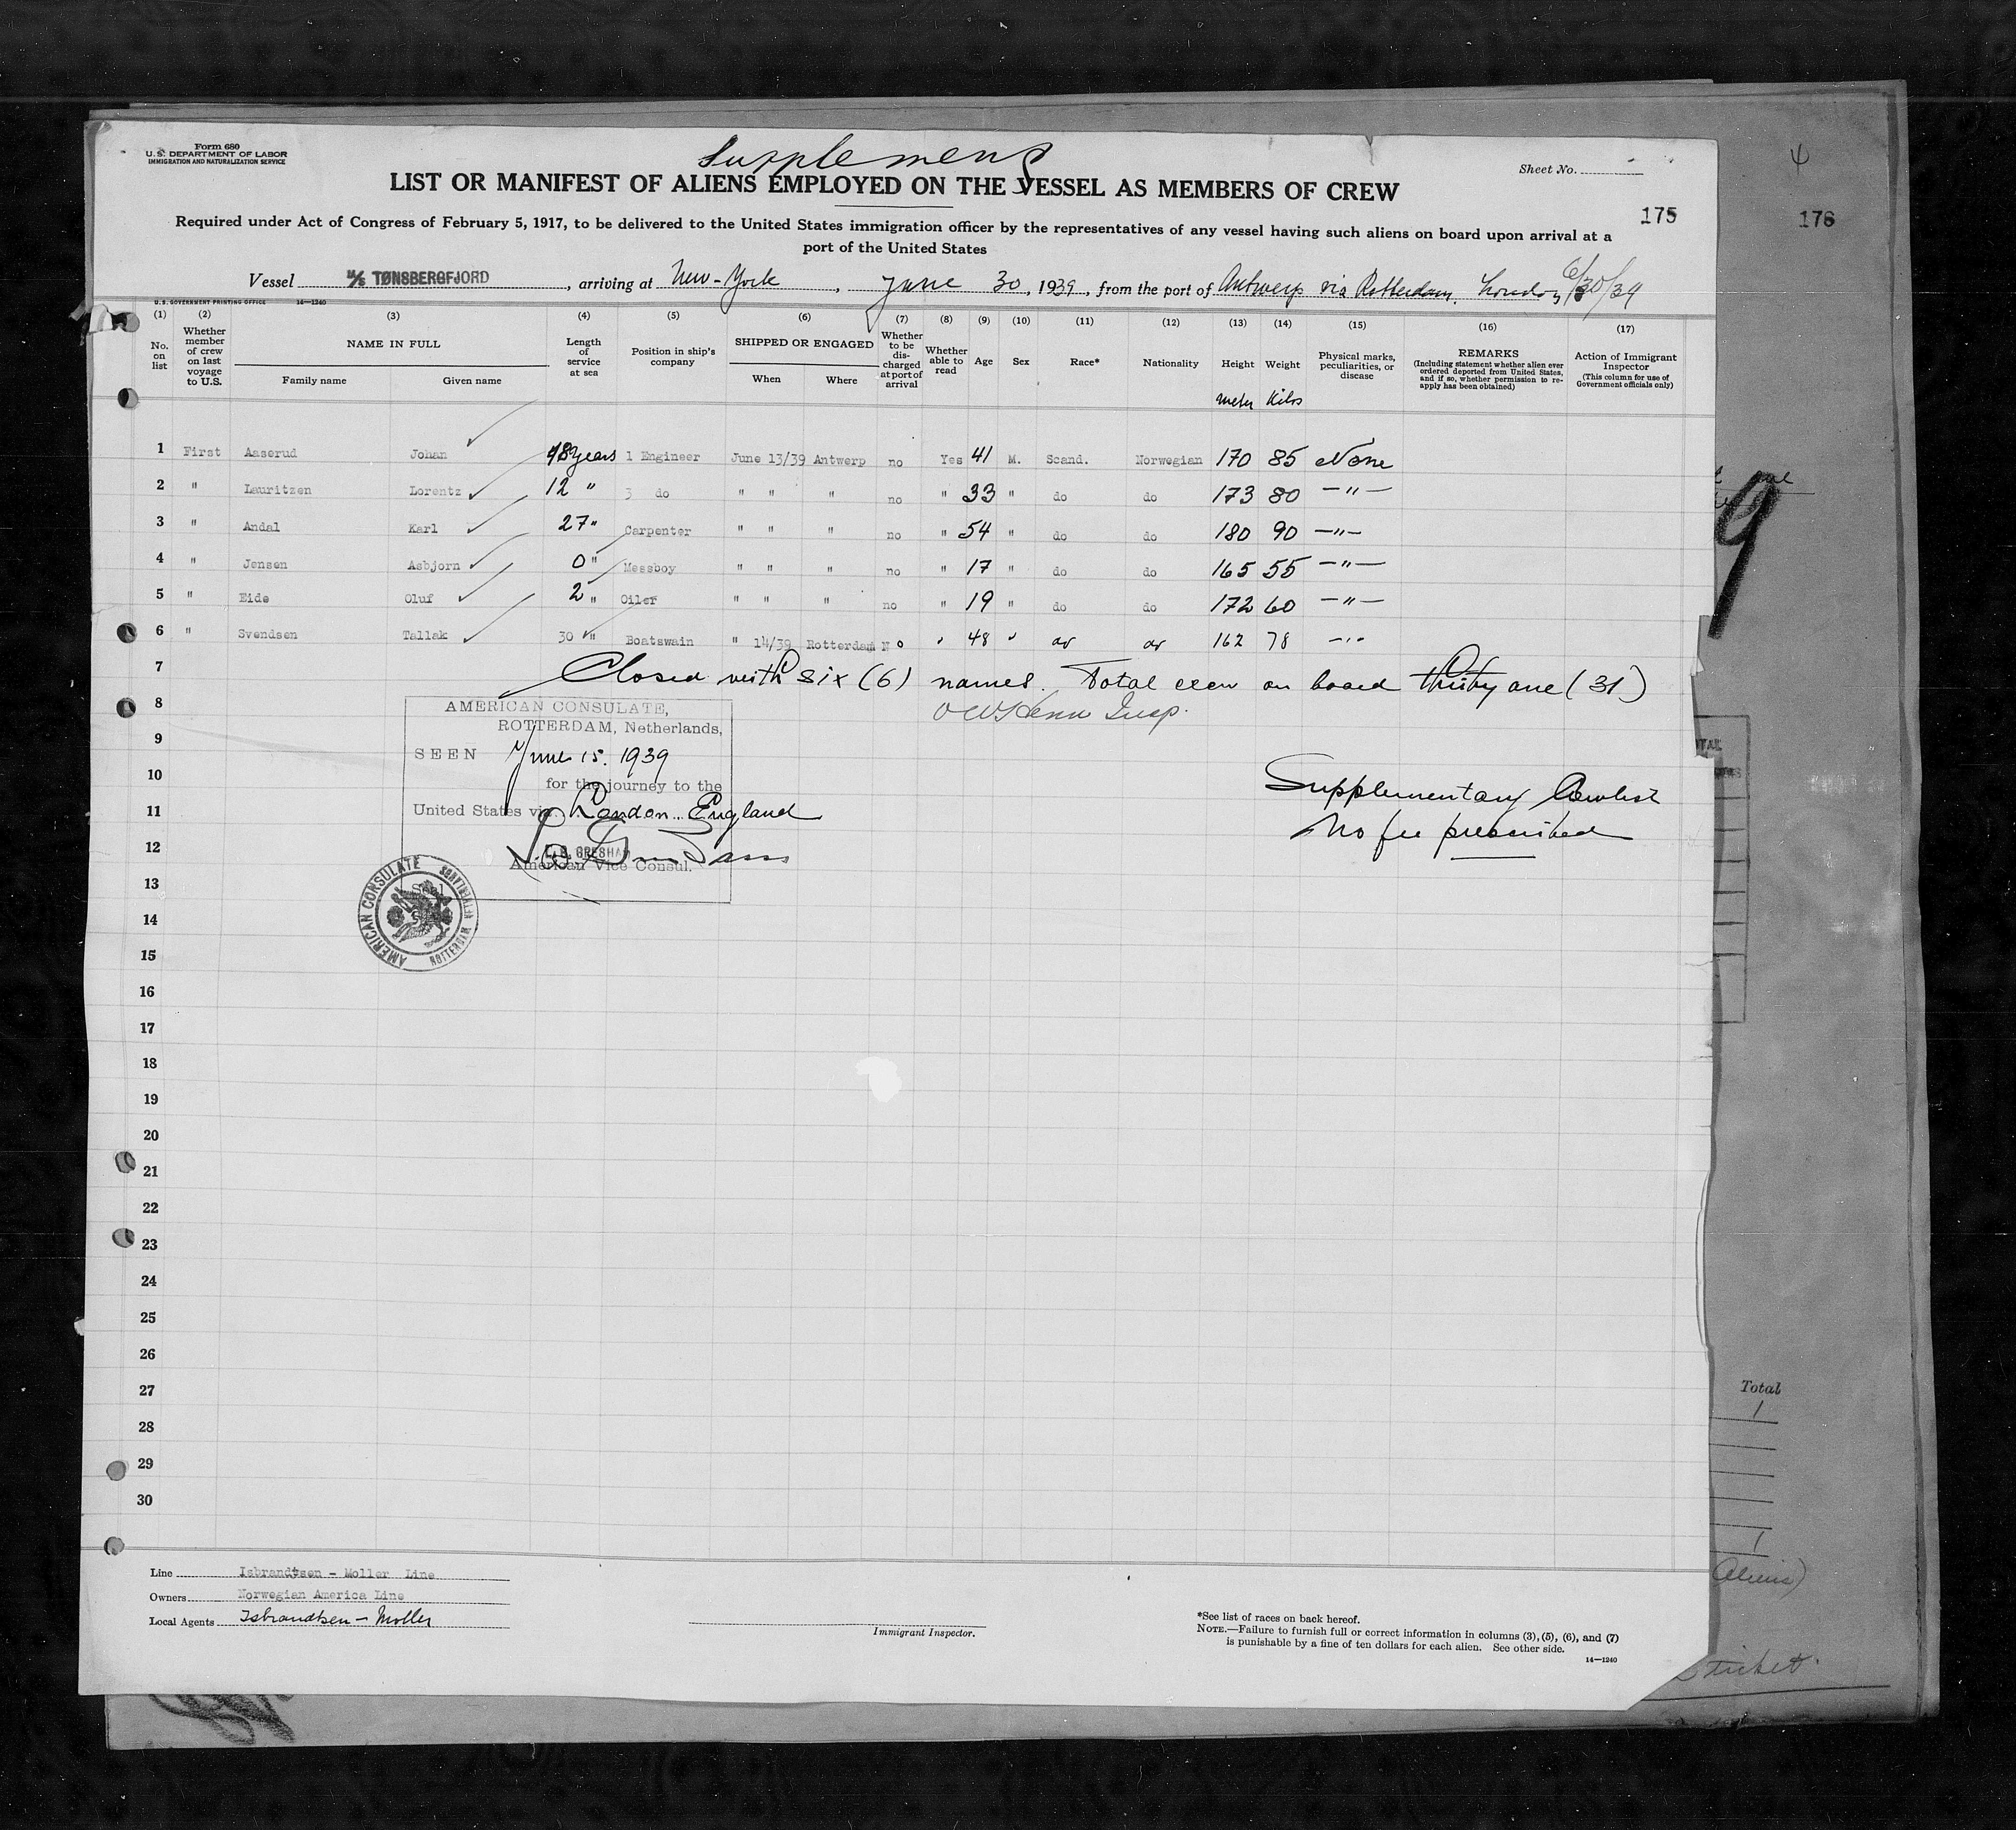 Form 680
U.S. DEPARTMENT OF LABOR
IMMIGRATION AND NATURALIZATION SERVICE
Supplement
Sheet No.
LIST OR MANIFEST OF ALIENS EMPLOYED ON THE VESSEL AS MEMBERS OF CREW
175
176
Required under Act of Congress of February 5, 1917, to be delivered to the United States immigration officer by the representatives of any vessel having such aliens on board upon arrival at a
port of the United States
Vessel M/S TØNSBERGFJORD, arriving at New-York, June 30, 1939, from the port of Antwerp via Rotterdam, London 6/30/39
U.S. GOVERNMENT PRINTING OFFICE 14—1240
(1) (2) (3) (4) (5) (6) (7) (8) (9) (10) (11) (12) (13) (14) (15) (16) (17)
No. on list
Whether member of crew on last voyage to U.S.
NAME IN FULL
Family name Given name
Length of service at sea
Position in ship's company
SHIPPED OR ENGAGED
When Where
Whether to be discharged at port of arrival
Whether able to read
Age
Sex
Race*
Nationality
Height
Weight
Physical marks, peculiarities, or disease
REMARKS
(Including statement whether alien ever ordered deported from United States, and if so, whether permission to reapply has been obtained)
Action of Immigrant Inspector
(This column for use of Government officials only)
meter Kilos
1 First Aaserud Johan 18 years 1 Engineer June 13/39 Antwerp no Yes 41 M. Scand. Norwegian 170 85 None
2 " Lauritzen Lorentz 12 " 3 do " " " no " 33 " do do 173 80 —"—
3 " Andal Karl 27 " Carpenter " " " no " 54 " do do 180 90 —"—
4 " Jensen Asbjorn 0 " Messboy " " " no " 17 " do do 165 55 —"—
5 " Eide Oluf 2 " Oiler " " " no " 19 " do do 172 60 —"—
6 " Svendsen Tallak 30 " Boatswain " 14/39 Rotterdam No " 48 " do do 162 78 —"—
7 Closed with six (6) names. Total crew on board thirty one (31)
8
Insp.
AMERICAN CONSULATE,
ROTTERDAM, Netherlands,
SEEN June 15. 1939
for the journey to the
United States via London England
L. B. GRESHAM
American Vice Consul.
Seal
AMERICAN CONSULATE
ROTTERDAM
Supplementary Crewlist
No fee prescribed
9
10
11
12
13
14
15
16
17
18
19
20
21
22
23
24
25
26
27
28
29
30
Total
1
1
(Aliens)
Line Isbrandtsen - Moller Line
Owners Norwegian America Line
Local Agents Isbrandtsen - Moller
Immigrant Inspector.
*See list of races on back hereof.
NOTE.—Failure to furnish full or correct information in columns (3), (5), (6), and (7)
is punishable by a fine of ten dollars for each alien. See other side.
14—1240